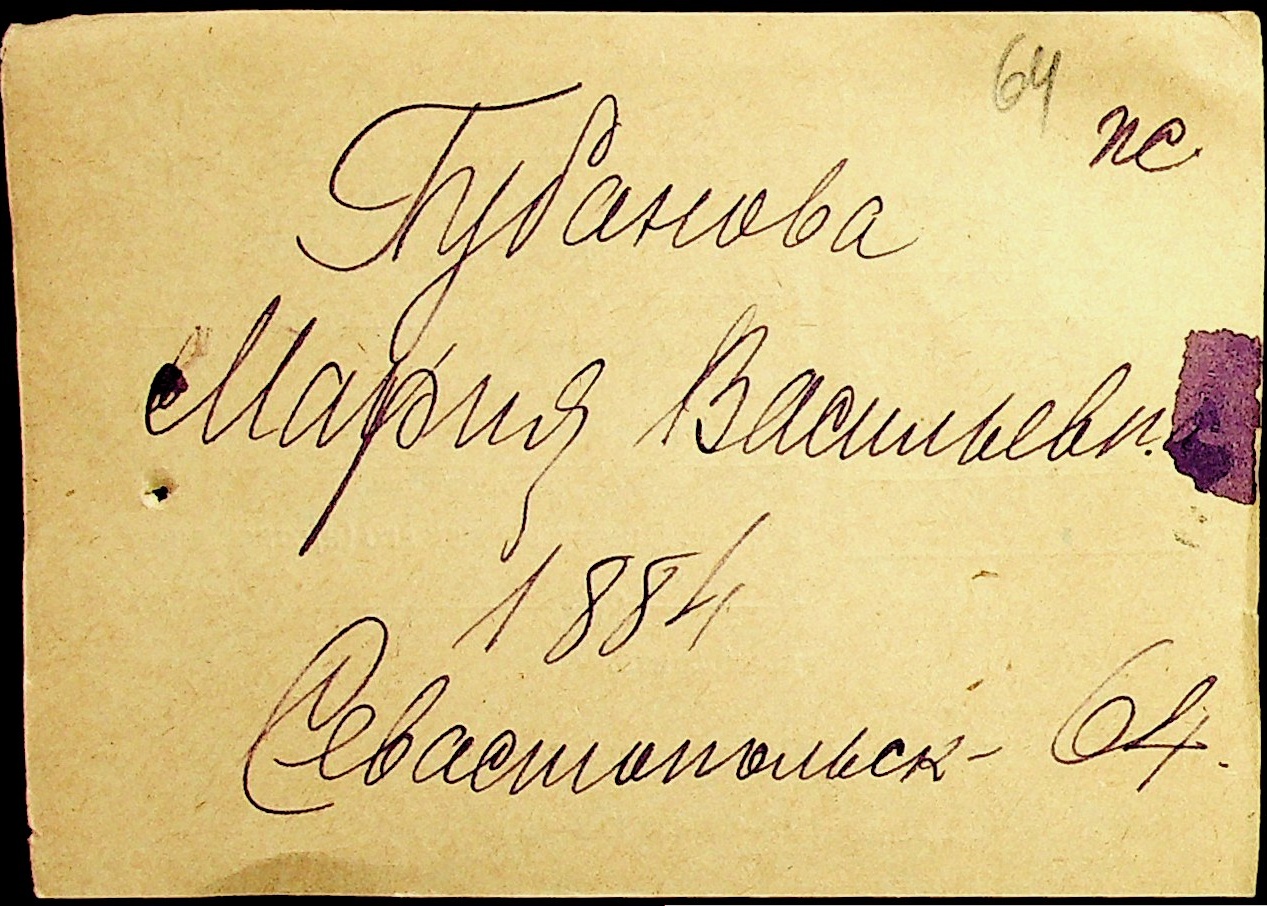 64
пс
Губанова
Мария Васильевн.
1884
Севастопольск- 64.